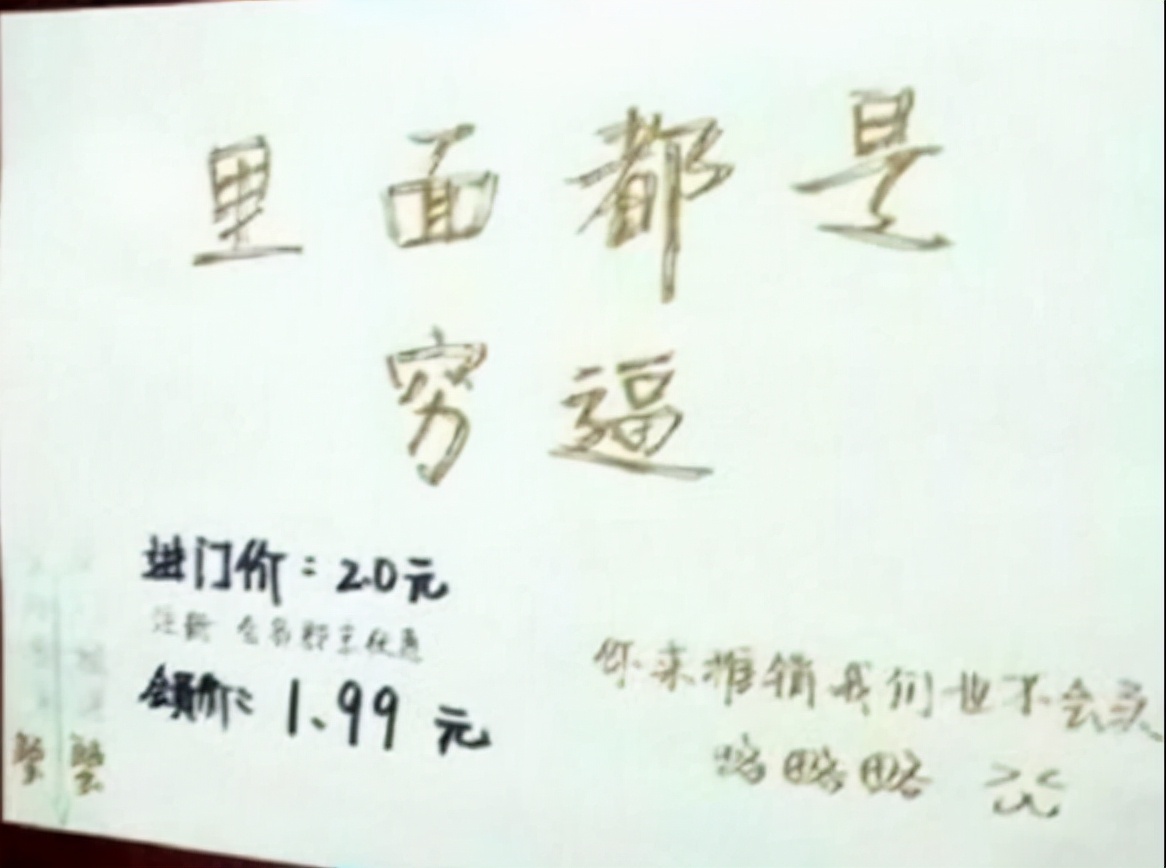 里面都是
穷逼
进门价：2.0元
注册会员即享优惠
会员价：1.99元
你来推销我们也不会买
略略略 ><